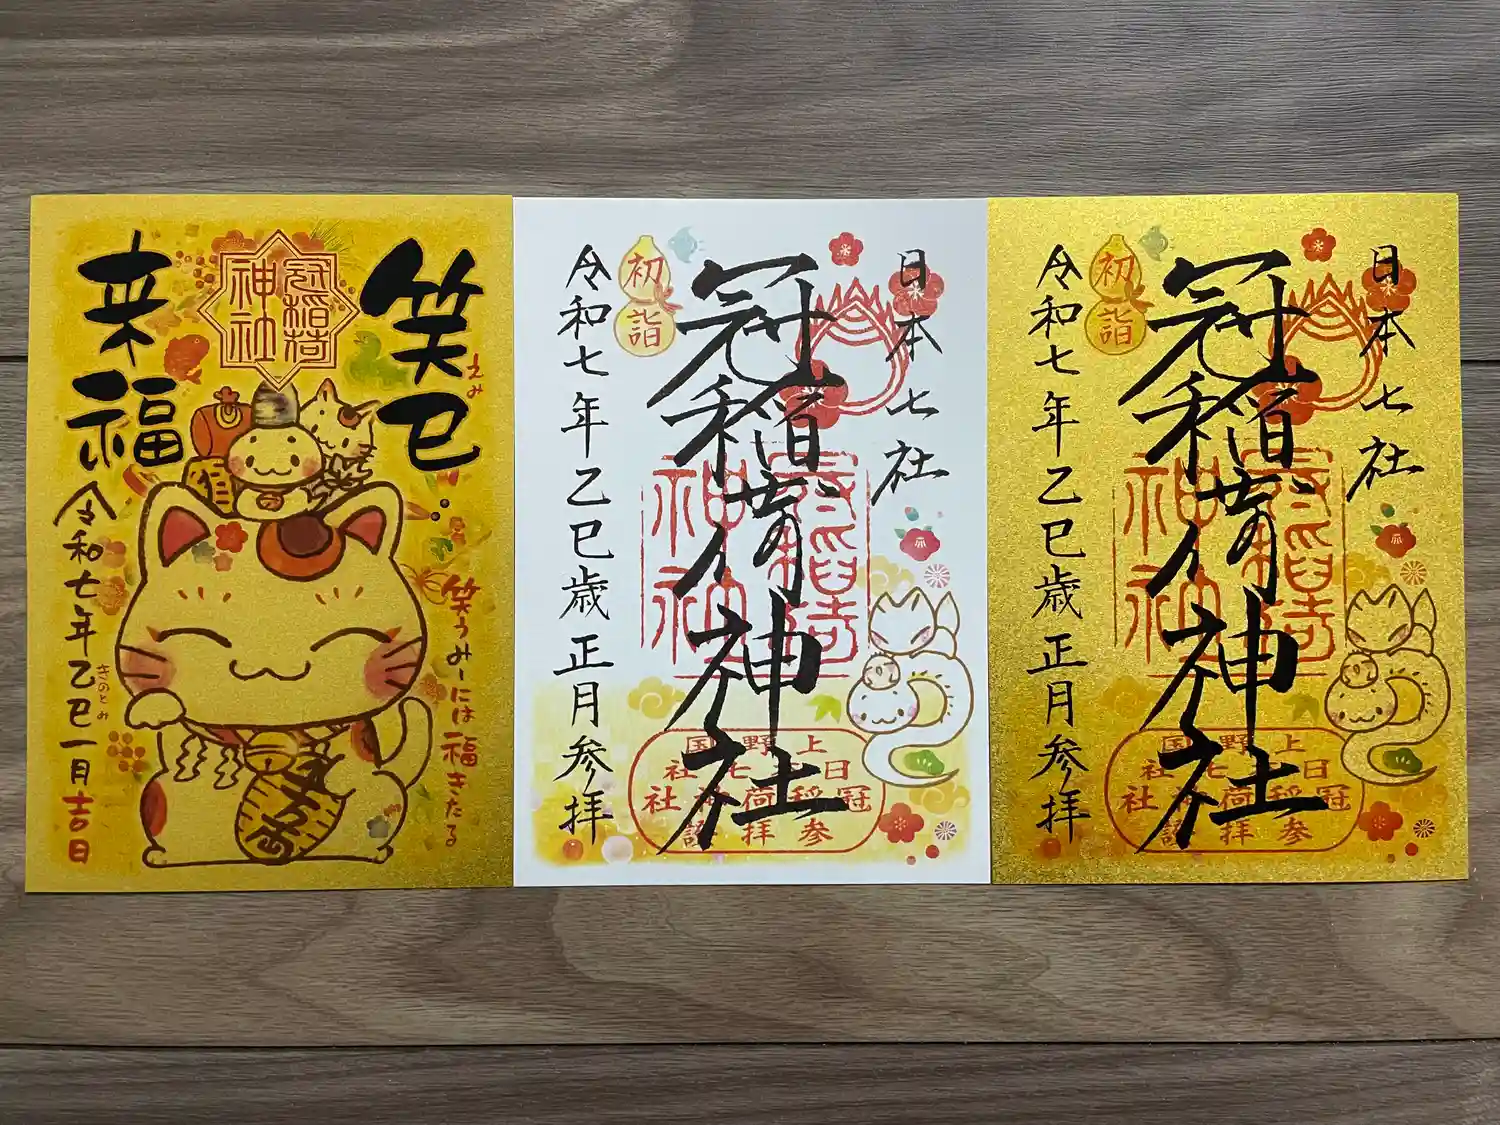 笑巳
えみ
来福
冠稲荷
神社
笑うみーには福きたる
令和七年乙巳一月吉日
きのとみ
日本七社
冠稲荷神社
初詣
令和七年乙巳歳正月参拝
冠稲荷
神社
上野国
日七社
冠稲荷神社
参拝
日本七社
冠稲荷神社
初詣
令和七年乙巳歳正月参拝
冠稲荷
神社
上野国
日七社
冠稲荷神社
参拝